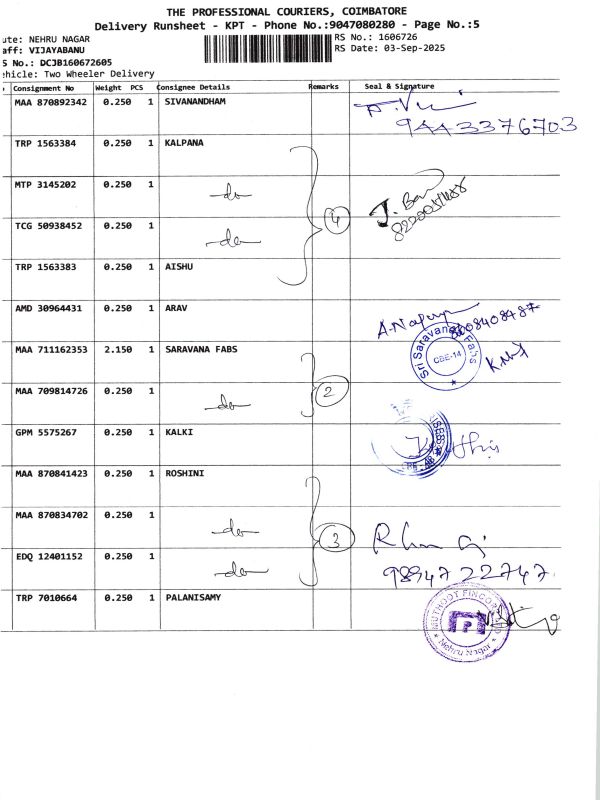 THE PROFESSIONAL COURIERS, COIMBATORE
Delivery Runsheet - KPT - Phone No.:9047080280 - Page No.:5
ute: NEHRU NAGAR
RS No.: 1606726
aff: VIJAYABANU
RS Date: 03-Sep-2025
S No.: DCJB160672605
ehicle: Two Wheeler Delivery
Consignment No Weight PCS Consignee Details Remarks Seal & Signature
MAA 870892342 0.250 1 SIVANANDHAM
9443376703
TRP 1563384 0.250 1 KALPANA
MTP 3145202 0.250 1 -do-
4
TCG 50938452 0.250 1 -do-
TRP 1563383 0.250 1 AISHU
AMD 30964431 0.250 1 ARAV
MAA 711162353 2.150 1 SARAVANA FABS
Sri Saravana Fabs
CBE-14
MAA 709814726 0.250 1 -do- 2
GPM 5575267 0.250 1 KALKI
MAA 870841423 0.250 1 ROSHINI
MAA 870834702 0.250 1 -do- 3
EDQ 12401152 0.250 1 -do-
9894722747
TRP 7010664 0.250 1 PALANISAMY
MUTHOOT FINCORP
Nehru Nagar